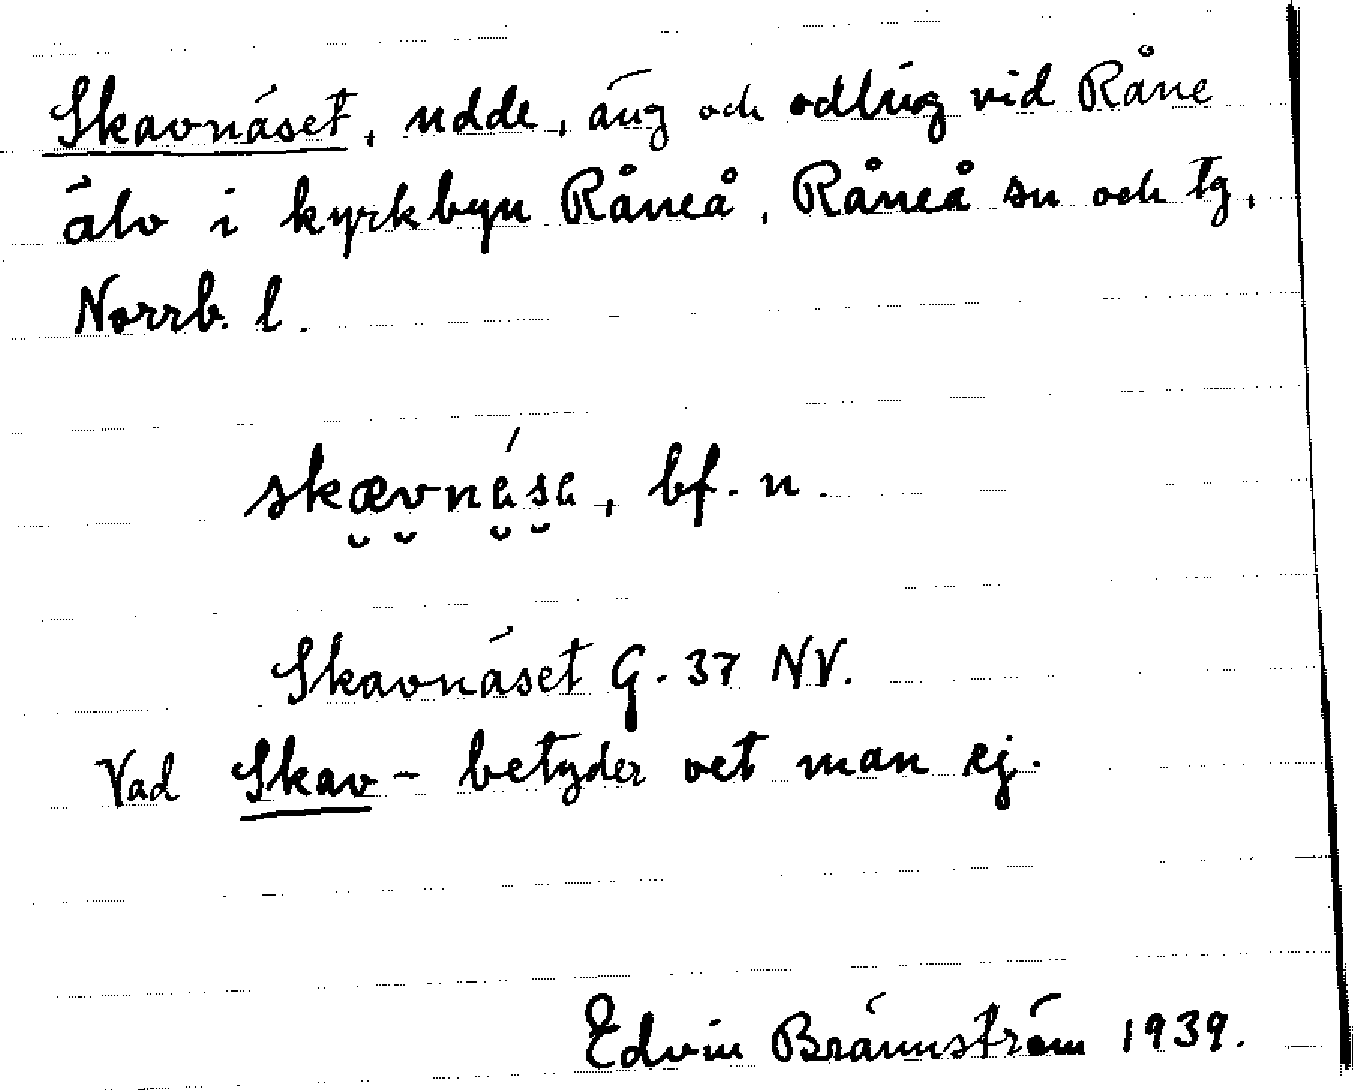 Skavnäset, udde, äng och odling vid Råne
älv i kyrkbyn Råneå, Råneå sn och tg,
Norrb. l.
skævnása, bf. n.
Skavnäset G. 37 NV.
Vad Skav- betyder vet man ej.
Edvin Brännström 1939.